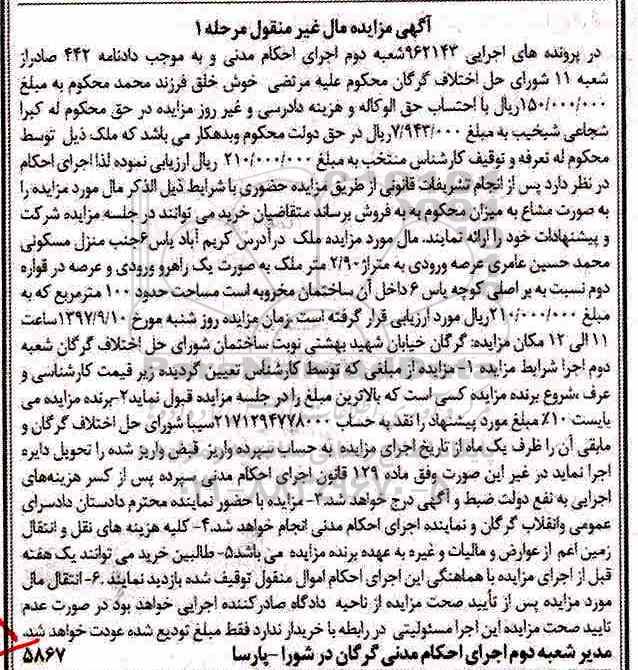 آگهی مزایده مال غیر منقول مرحله ۱
در پرونده های اجرایی ۹۶۲۱۴۳شعبه دوم اجرای احکام مدنی و به موجب دادنامه ۴۴۲ صادراز
شعبه ۱۱ شورای حل اختلاف گرگان محکوم علیه مرتضی خوش خلق فرزند محمد محکوم به مبلغ
۱۵۰/۰۰۰/۰۰۰ریال با احتساب حق الوکاله و هزینه دادرسی و غیر روز مزایده در حق محکوم له کبرا
شجاعی شیخیب به مبلغ ۷/۹۴۳/۰۰۰ریال در حق دولت محکوم وبدهکار می باشد که ملک ذیل توسط
محکوم له تعرفه و توقیف کارشناس منتخب به مبلغ ۲۱۰/۰۰۰/۰۰۰ ریال ارزیابی نموده لذا اجرای احکام
در نظر دارد پس از انجام تشریفات قانونی از طریق مزایده حضوری با شرایط ذیل الذکر مال مورد مزایده را
به صورت مشاع به میزان محکوم به به فروش برساند متقاضیان خرید می توانند در جلسه مزایده شرکت
و پیشنهادات خود را ارائه نمایند. مال مورد مزایده ملک درآدرس کریم آباد یاس۶جنب منزل مسکونی
محمد حسین عامری عرصه ورودی به متراژ۲/۹۰ متر ملک به صورت یک راهرو ورودی و عرصه در قواره
دوم نسبت به بر اصلی کوچه یاس ۶ داخل آن ساختمان مخروبه است مساحت حدود ۱۰۰ مترمربع که به
مبلغ ۲۱۰/۰۰۰/۰۰۰ریال مورد ارزیابی قرار گرفته است .زمان مزایده روز شنبه مورخ ۱۳۹۷/۹/۱۰ساعت
۱۱ الی ۱۲ مکان مزایده: گرگان خیابان شهید بهشتی نوبت ساختمان شورای حل اختلاف گرگان شعبه
دوم اجرا شرایط مزایده ۱-مزایده از مبلغی که توسط کارشناس تعیین گردیده زیر قیمت کارشناسی و
عرف ،شروع برنده مزایده کسی است که بالاترین مبلغ را در جلسه مزایده قبول نماید۲-برنده مزایده می
بایست ۱۰٪ مبلغ مورد پیشنهاد را نقد به حساب ۲۱۷۱۲۹۴۷۷۸۰۰۰سیبا شورای حل اختلاف گرگان و
مابقی آن را ظرف یک ماه از تاریخ اجرای مزایده به حساب سپرده واریز قبض واریز شده را تحویل دایره
اجرا نماید در غیر این صورت وفق ماده ۱۲۹ قانون اجرای احکام مدنی سپرده پس از کسر هزینه‌های
اجرایی به نفع دولت ضبط و آگهی درج خواهد شد.۳-مزایده با حضور نماینده محترم دادستان دادسرای
عمومی وانقلاب گرگان و نماینده اجرای احکام مدنی انجام خواهد شد.۴- کلیه هزینه های نقل و انتقال
زمین اعم از عوارض و مالیات و غیره به عهده برنده مزایده می باشد۵- طالبین خرید می توانند یک هفته
قبل از اجرای مزایده با هماهنگی این اجرای احکام اموال منقول توقیف شده بازدید نمایند .۶- انتقال مال
مورد مزایده پس از تأیید صحت مزایده از ناحیه دادگاه صادرکننده اجرایی خواهد بود در صورت عدم
تایید صحت مزایده این اجرا مسئولیتی در رابطه با خریدار ندارد فقط مبلغ تودیع شده عودت خواهد شد.
مدیر شعبه دوم اجرای احکام مدنی گرگان در شورا -پارسا ۵۸۶۷